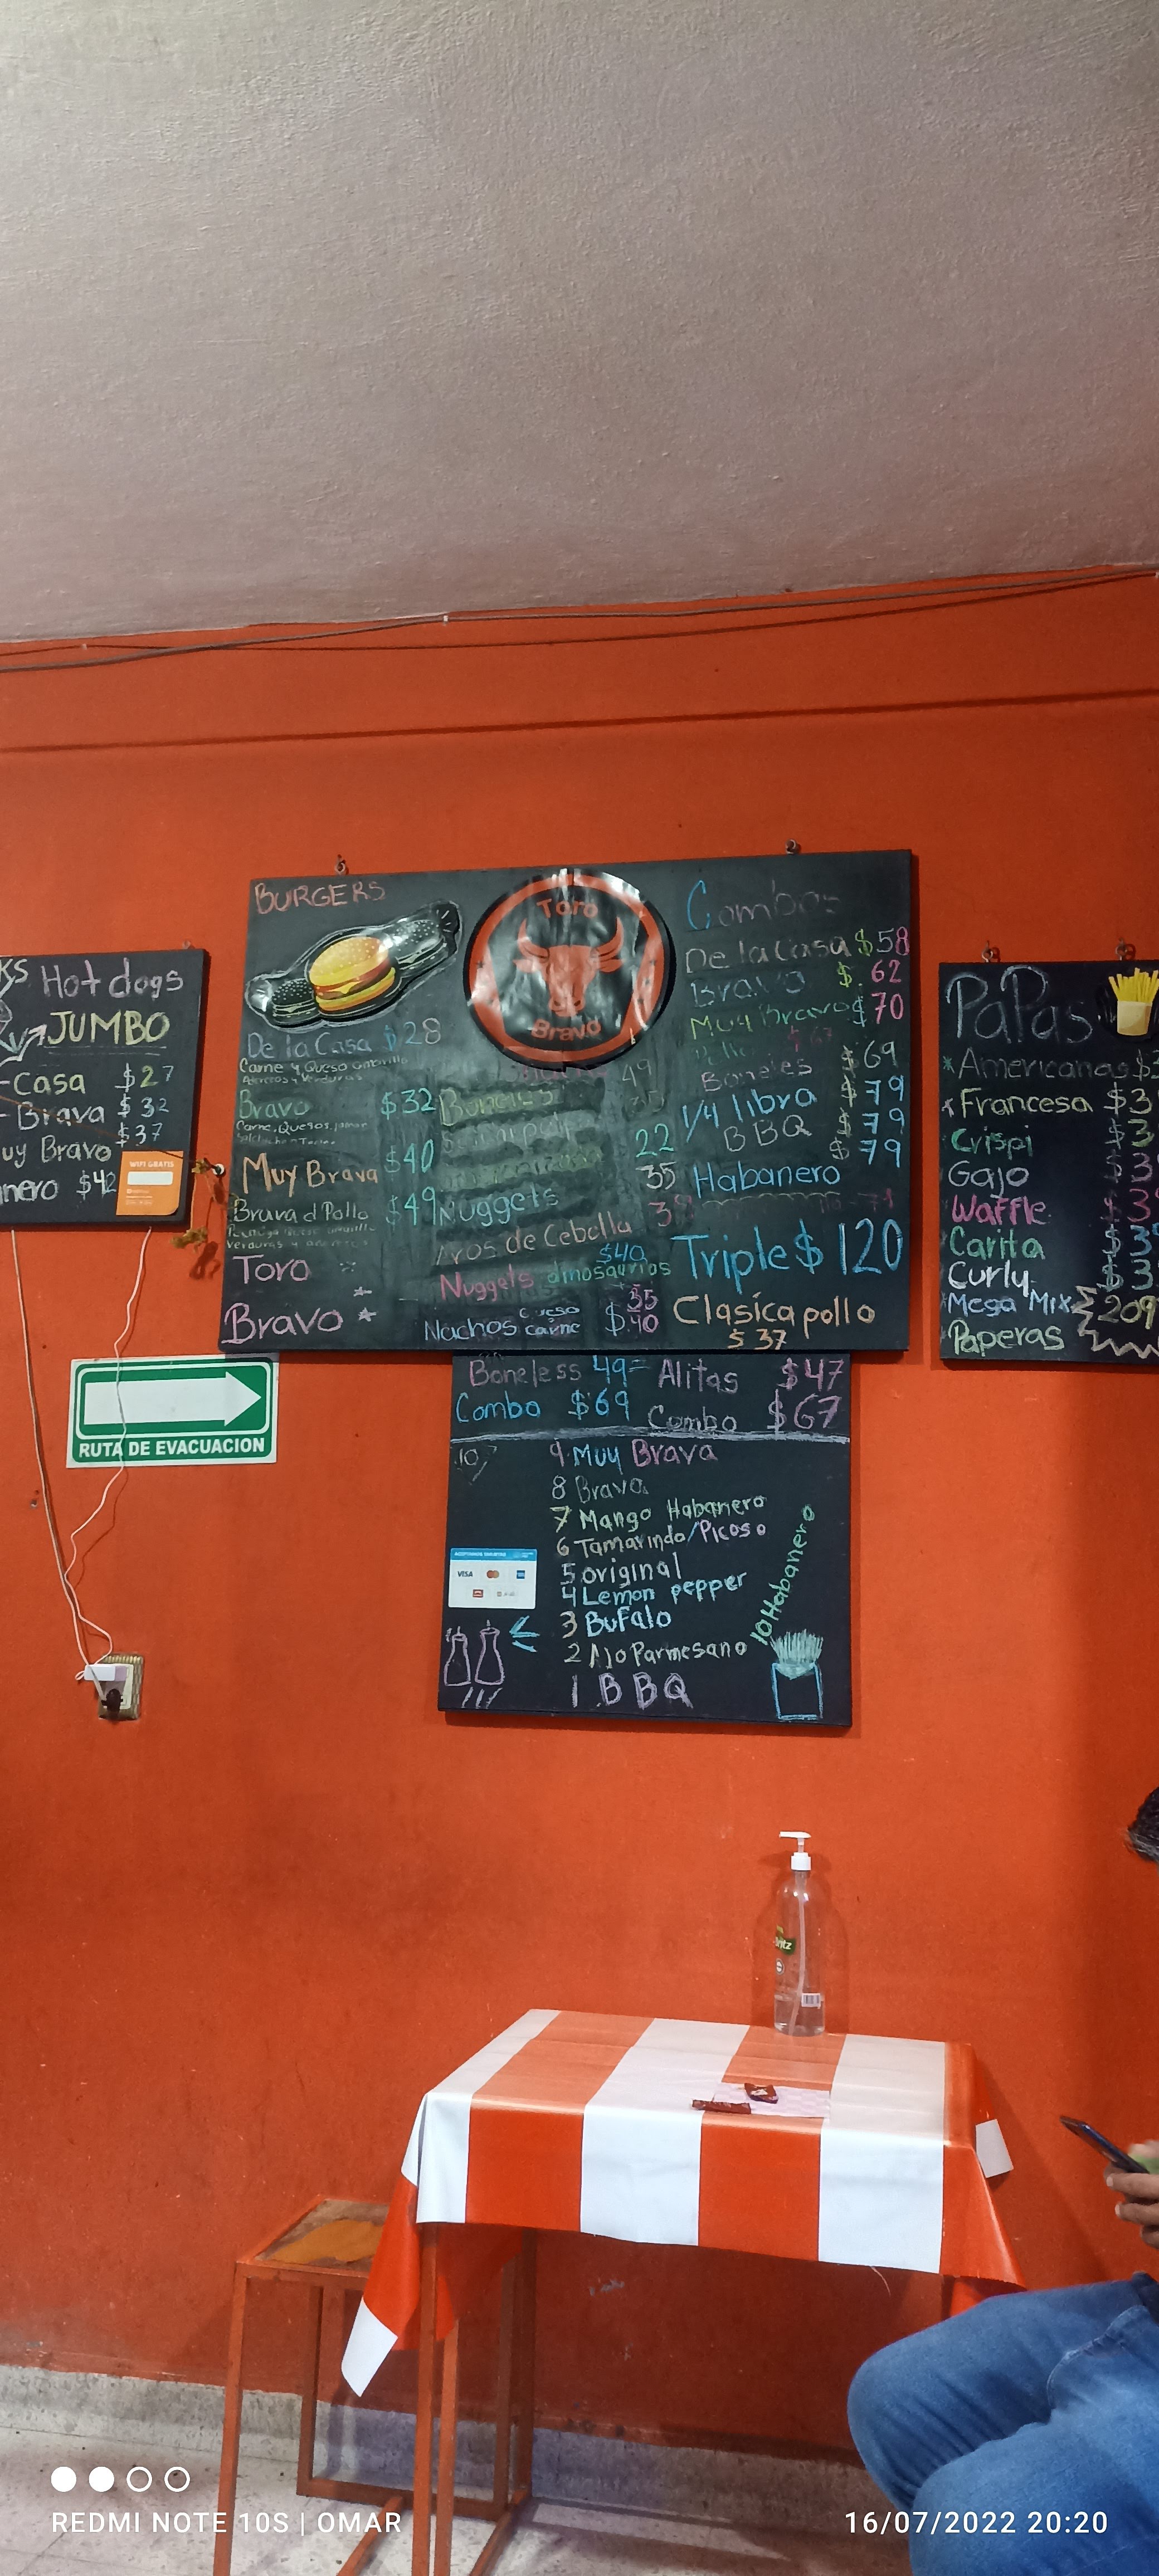 Hot dogs
JUMBO
-Casa $27
-Brava $32
uy Bravo $37
nero $42
WIFI GRATIS
BURGERS
De la Casa $28
Carne y Queso amarillo
Bravo $32
Muy Brava $40
Brava d Pollo $49
Toro
Bravo
Toro
Bravo
Boneless
49
22
Nuggets 35
Aros de Cebolla 38
$40
Nuggets dinosaurios
Nachos queso $35
carne $40
Combos
De la Casa $58
Bravo $62
Muy Bravo $70
Boneles $69
1/4 libra $79
BBQ $79
Habanero $79
Triple $120
Clasica pollo
$37
PaPas
Americanas
Francesa
Crispi
Gajo
Waffle
Carita
Curly
Mega Mix
Paperas
RUTA DE EVACUACION
Boneless 49= Alitas $47
Combo $69 Combo $67
10
9 Muy Brava
8 Brava
7 Mango Habanero
6 Tamarindo/Picoso
5 original
4 Lemon pepper
3 Bufalo
2 Ajo Parmesano
1 BBQ
10 Habanero
VISA
REDMI NOTE 10S | OMAR
16/07/2022 20:20